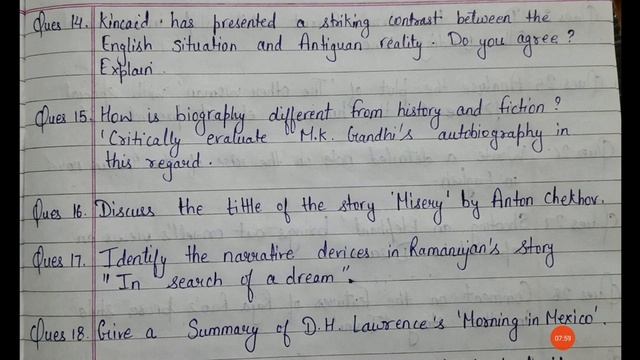 Ques 14. Kincaid has presented a striking contrast between the
English situation and Antiguan reality. Do you agree?
Explain.
Ques 15. How is biography different from history and fiction?
'Critically evaluate M.K. Gandhi's autobiography in
this regard.
Ques 16. Discuss the tittle of the story 'Misery' by Anton Chekhov.
Ques 17. Identify the narrative devices in Ramanujan's story
"In search of a dream".
Ques 18. Give a Summary of D.H. Lawrence's 'Morning in Mexico'.
07:59